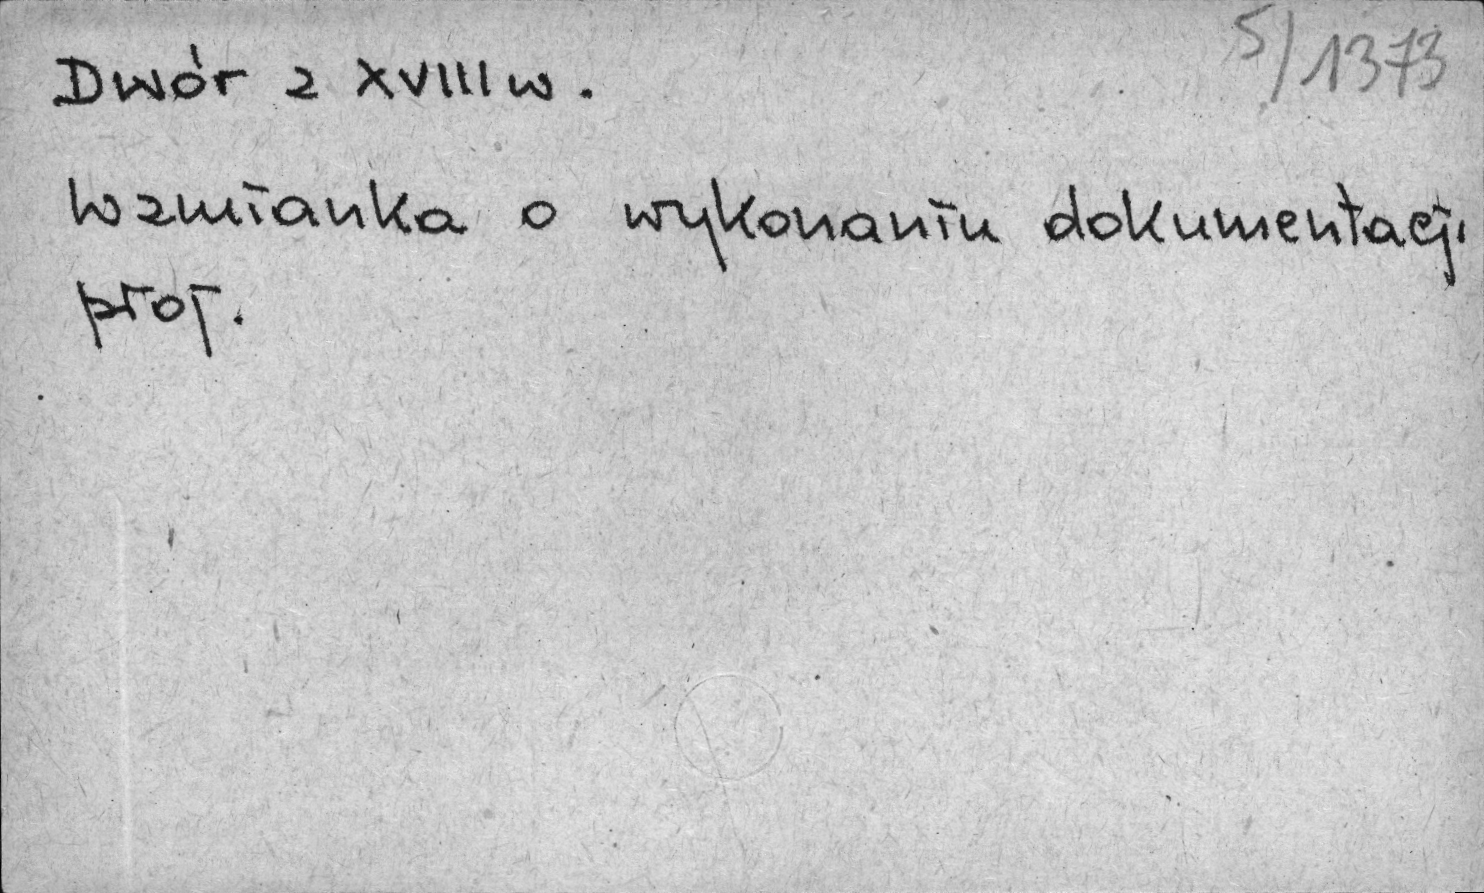 5/1373
Dwór z XVIII w.
Wzmianka o wykonaniu dokumentacji
proj.